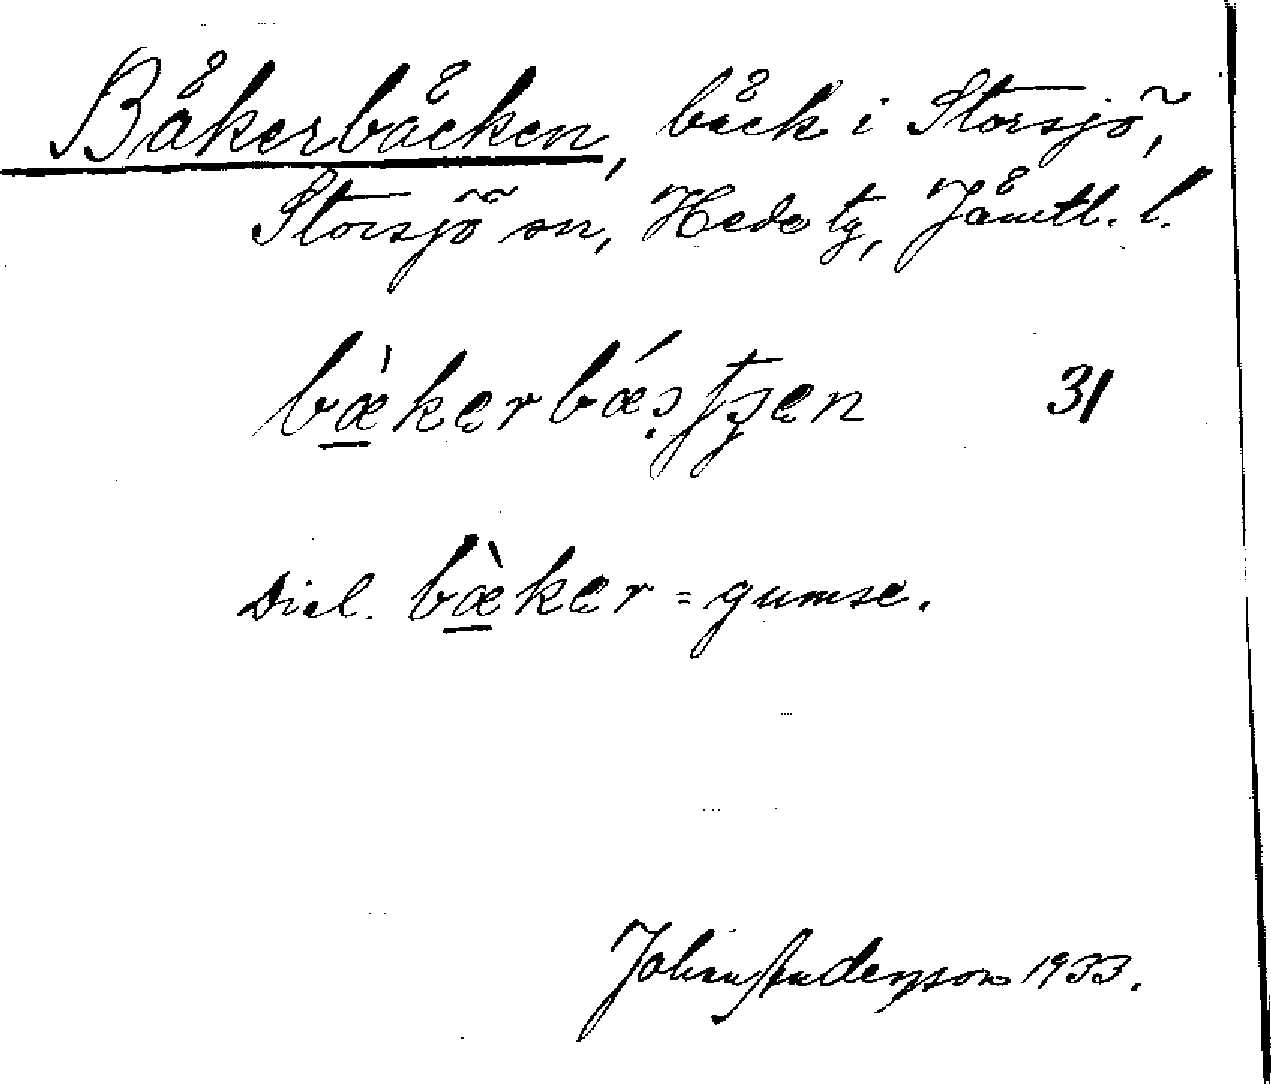 Bäkerbäcken, bäck i Storsjö,
Storsjö sn, Hede tg, Jämtl. l.
bæ̀kerbǽ 31
Dial. bæ̀ker = gumse.
Johan Anderson 1933.